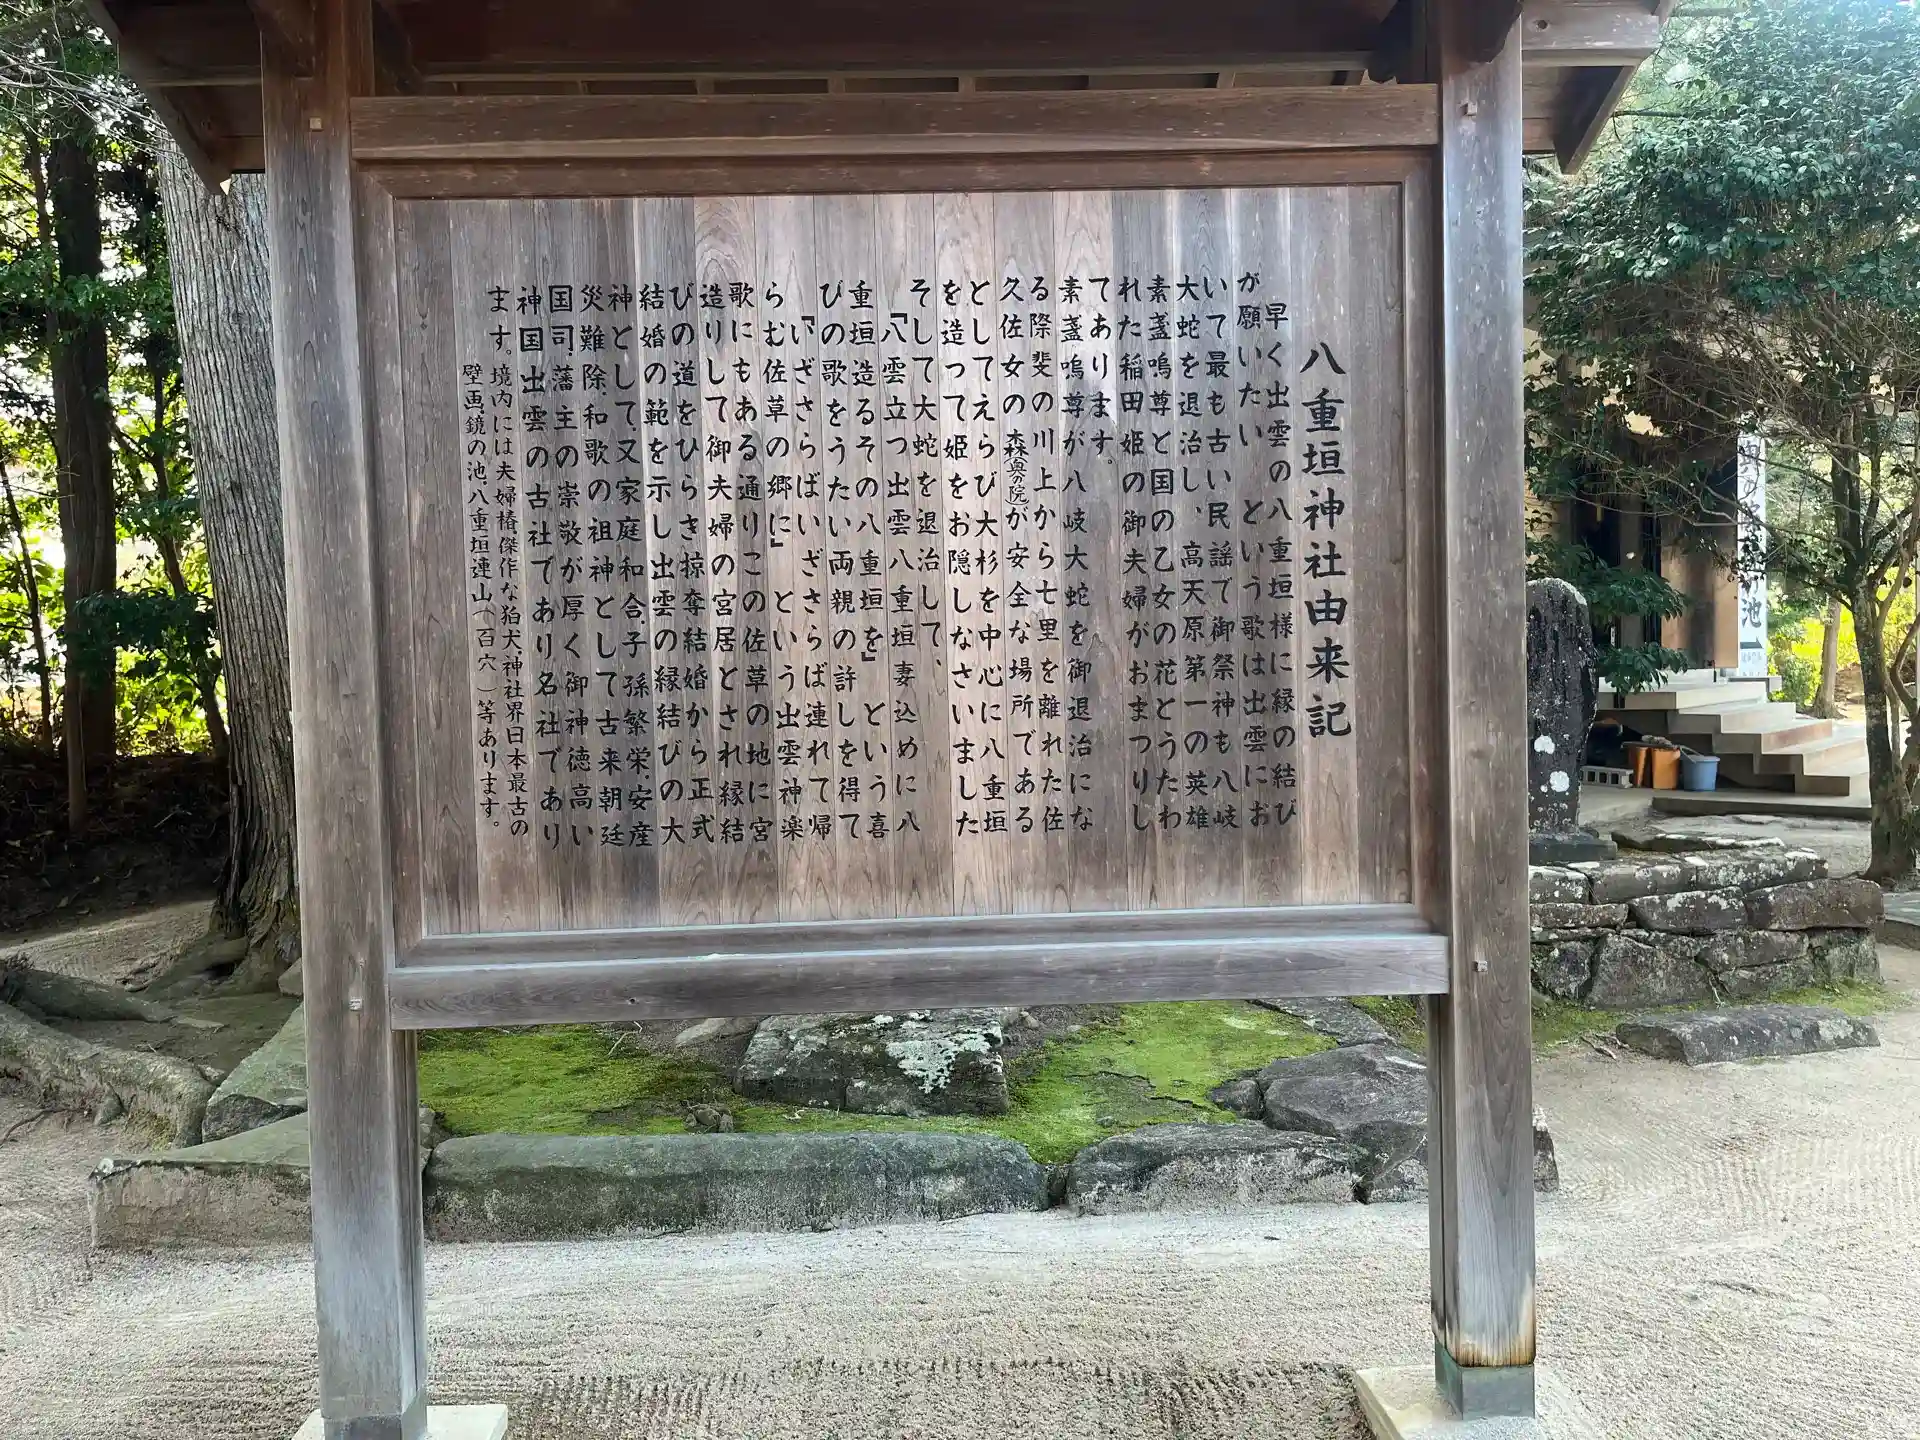 八重垣神社由来記
早く出雲の八重垣様に縁の結び
が願いたい　という歌は出雲にお
いて最も古い民謡で御祭神も八岐
大蛇を退治し、高天原第一の英雄
素盞嗚尊と国の乙女の花とうたわ
れた稲田姫の御夫婦がおまつりし
てあります。
素盞嗚尊が八岐大蛇を御退治にな
る際斐の川上から七里を離れた佐
久佐女の森奥の院が安全な場所である
としてえらび大杉を中心に八重垣
を造って姫をお隠しなさいました
そして大蛇を退治して、
『八雲立つ出雲八重垣妻込めに八
重垣造るその八重垣を』という喜
びの歌をうたい両親の許しを得て
『いざさらばいざさらば連れて帰
らむ佐草の郷に』という出雲神楽
歌にもある通りこの佐草の地に宮
造りして御夫婦の宮居とされ縁結
びの道をひらき掠奪結婚から正式
結婚の範を示し出雲の縁結びの大
神として、又家庭和合、子孫繁栄、安産
災難除、和歌の祖神として古来朝廷
国司、藩主の崇敬が厚く御神徳高い
神国出雲の古社であり名社であり
ます。境内には夫婦椿傑作な狛犬、神社界日本最古の
壁画、鏡の池、八重垣連山(百穴)等あります。
池